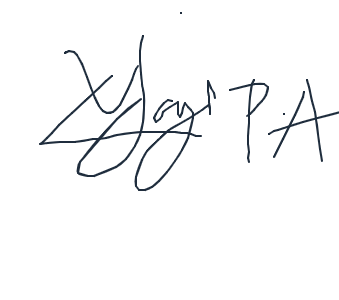 Yogi PA